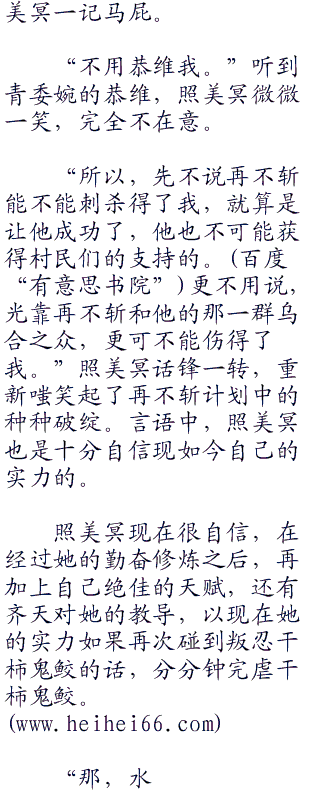 美冥一记马屁。
“不用恭维我。”听到
青委婉的恭维，照美冥微微
一笑，完全不在意。
“所以，先不说再不斩
能不能刺杀得了我，就算是
让他成功了，他也不可能获
得村民们的支持的。(百度
“有意思书院”)更不用说，
光靠再不斩和他的那一群乌
合之众，更可不能伤得了
我。”照美冥话锋一转，重
新嗤笑起了再不斩计划中的
种种破绽。言语中，照美冥
也是十分自信现如今自己的
实力的。
照美冥现在很自信，在
经过她的勤奋修炼之后，再
加上自己绝佳的天赋，还有
齐天对她的教导，以现在她
的实力如果再次碰到叛忍干
柿鬼鲛的话，分分钟完虐干
柿鬼鲛。
(www.heihei66.com)
“那，水